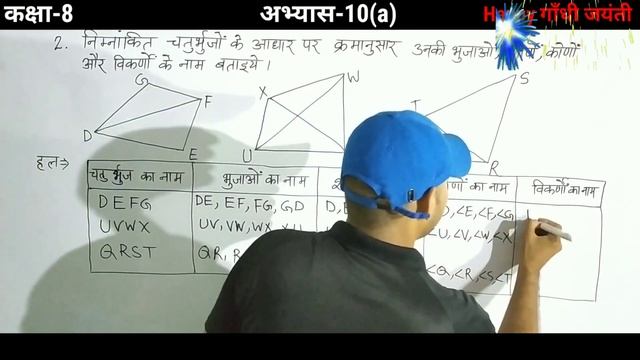 कक्षा-8 अभ्यास-10(a) गाँधी जयंती
2. निम्नांकित चतुर्भुजों के आधार पर क्रमानुसार उनकी भुजाओं कोणों
और विकर्णों के नाम बताइये।
G F D E
X W U
T S R
हल⇒
चतुर्भुज का नाम भुजाओं का नाम का नाम विकर्णों का नाम
DEFG DE, EF, FG, GD ∠E, ∠F, ∠G
UVWX UV, VW, WX ∠U, ∠V, ∠W, ∠X
QRST QR, ∠Q, ∠R, ∠S, ∠T